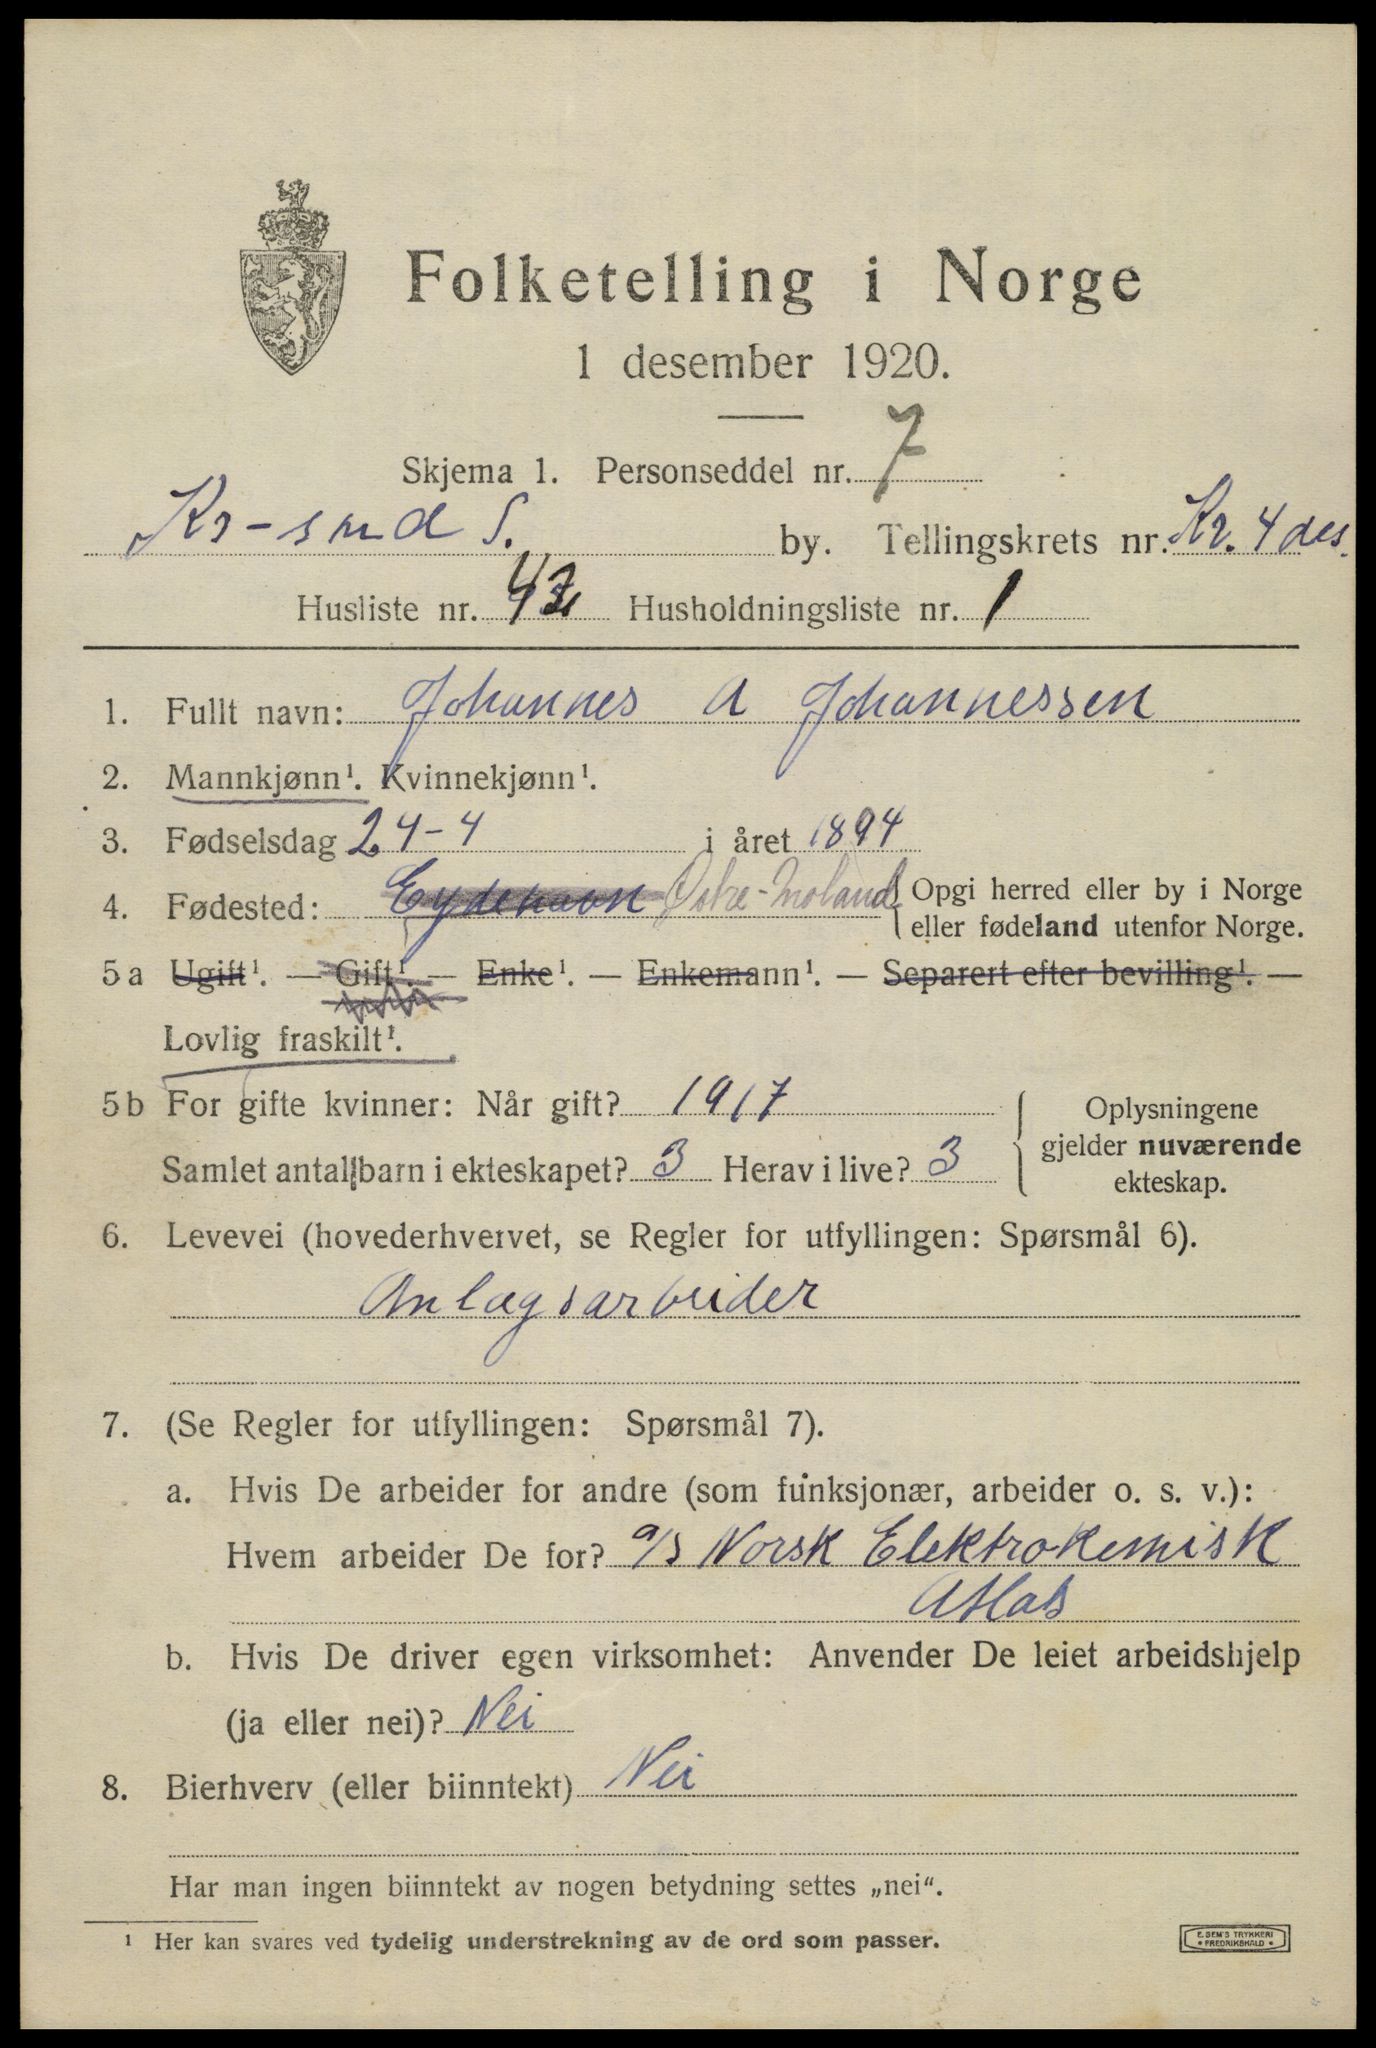 Folketelling i Norge
1 desember 1920.
Skjema 1. Personseddel nr. 7
Kr-sund S. by. Tellingskrets nr. Kr. 4 des.
Husliste nr. 42 Husholdningsliste nr. 1
1. Fullt navn: Johannes A Johannessen
2. Mannkjønn¹. Kvinnekjønn¹.
3. Fødselsdag 24-4 i året 1894
4. Fødested: Eydehavn Østre-Moland { Opgi herred eller by i Norge
eller fødeland utenfor Norge.
5a Ugift¹. — Gift¹. — Enke¹. — Enkemann¹. — Separert efter bevilling¹. —
Lovlig fraskilt¹.
5b For gifte kvinner: Når gift? 1917
Samlet antall barn i ekteskapet? 3 Herav i live? 3
Oplysningene
gjelder nuværende
ekteskap.
6. Levevei (hovederhvervet, se Regler for utfyllingen: Spørsmål 6).
Anlægsarbeider
7. (Se Regler for utfyllingen: Spørsmål 7).
a. Hvis De arbeider for andre (som funksjonær, arbeider o. s. v.):
Hvem arbeider De for? a/s Norsk Elektrokemisk
b. Hvis De driver egen virksomhet: Anvender De leiet arbeidshjelp
(ja eller nei)? Nei
8. Bierhverv (eller biinntekt) Nei
Har man ingen biinntekt av nogen betydning settes „nei“.
¹ Her kan svares ved tydelig understrekning av de ord som passer.
E. SEM'S TRYKKERI
• FREDRIKSHALD •